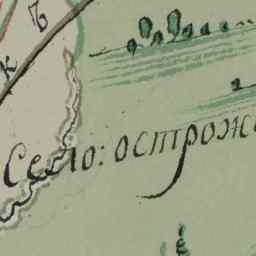 къ
Село: острож